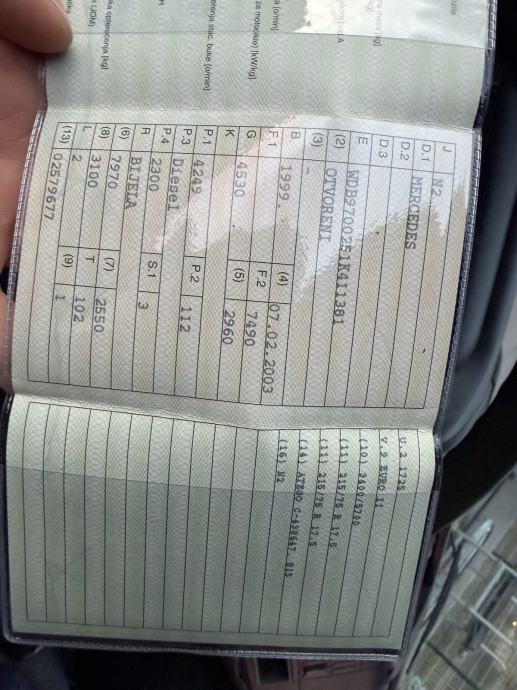 [kg]
[o/min]
za motocikle) [kW/kg]
stac. buke [o/min]
[kg]
J N2
D.1 MERCEDES
D.2
D.3
E WDB9700251K411381
(2) OTVORENI
(3) -
B 1999. (4) 07.02.2003
F.1 F.2 7490
G 4530 (5) 2960
K
P.1 4249 P.2 112
P.3 Diesel
P.4 2300 S.1 3
R BIJELA
(6) 7970 (7) 2550
(8) 3100 T 102
L 2 (9) 1
(13) 02579677
U.2 1725
V.9 EURO II
(10) 3400/5700
(11) 215/75 R 17.5
(11) 215/75 R 17.5
(14) ATEGO 815
(16) N2